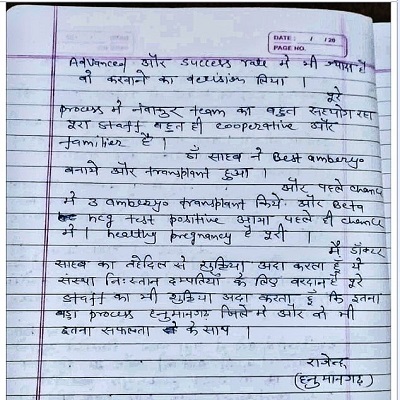 DATE: / / 20
PAGE NO.
Advanced और success rate में भी ज्यादा है
वो करवाने का decision लिया ।
पूरे
process में नवांकुर team का बहुत सहयोग रहा
पूरा staff बहुत ही cooperative और
familier है ।
डॉ साहब ने Best amberyo
बनाये और transplant हुआ ।
और पहले chance
में 3 amberyo transplant किये और Beta
hcg test positive आया पहले ही chance
में । healthy pregnancy है पूरी ।
मैं डॉक्टर
साहब का तहेदिल से शुक्रिया अदा करता हूँ ये
संस्था निःस्तान दम्पतियों के लिए वरदान है पूरे
staff का भी शुक्रिया अदा करता हूँ कि इतना
बड़ा process हनुमानगढ़ जिले में और वो भी
इतना सफलता के साथ ।
राजेन्द्र
(हनुमानगढ़)